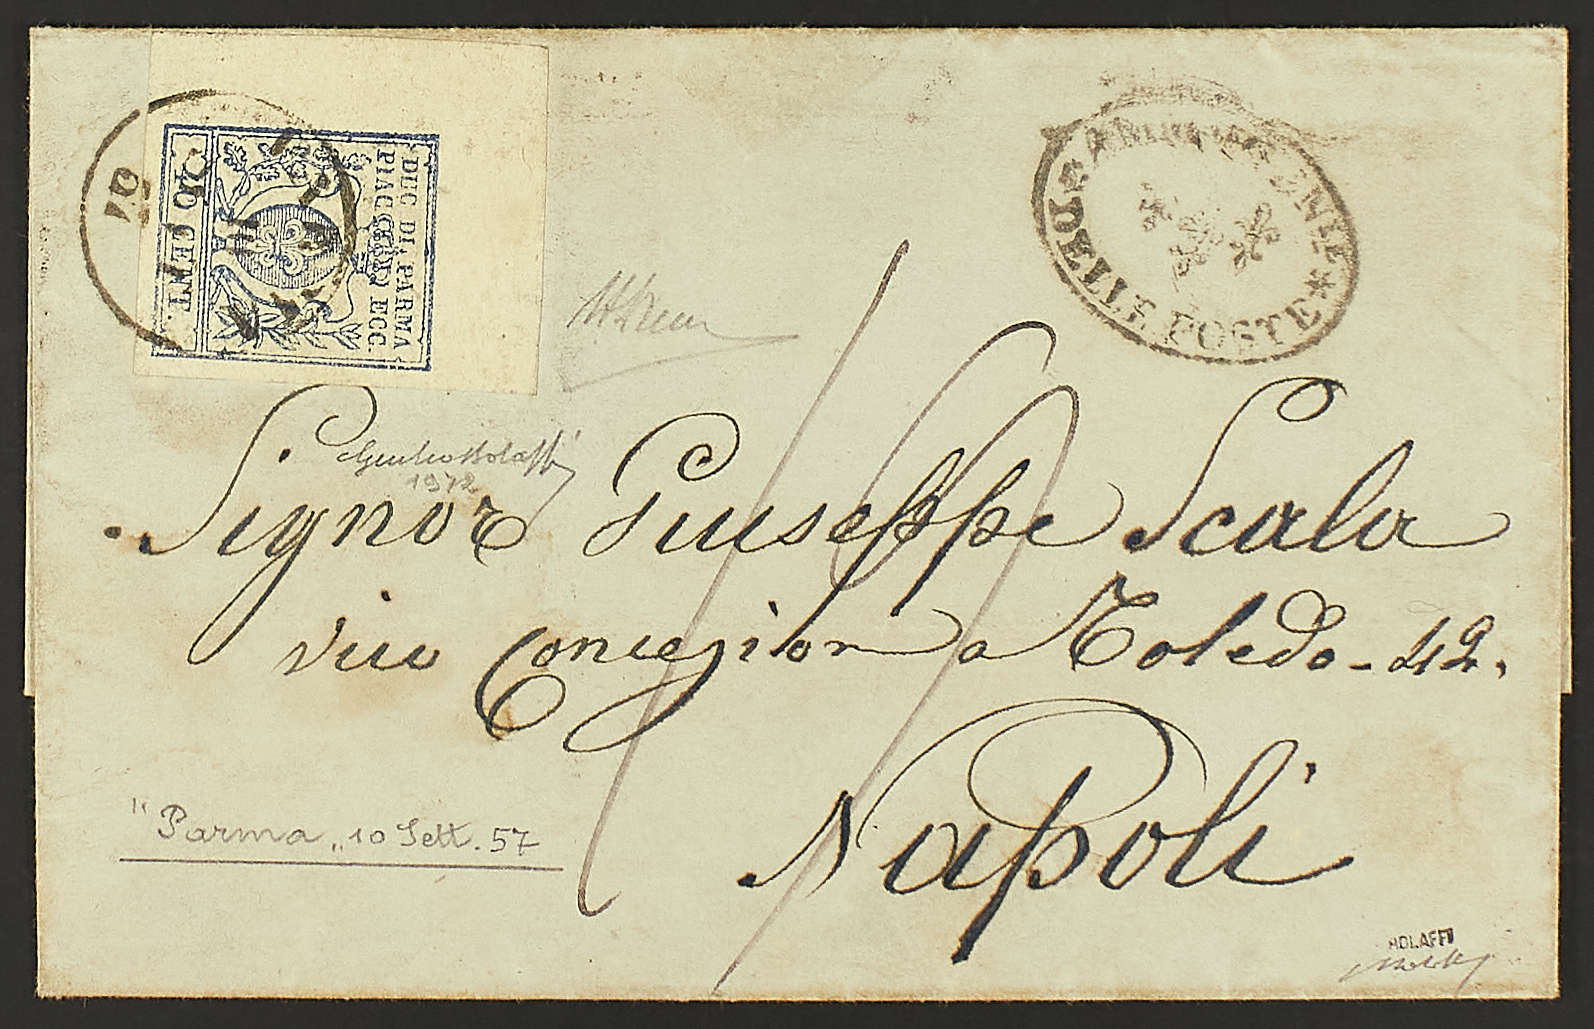 DUC. DI PARMA
PIAC. ECC.
40 CENT.
DELLE POSTE
1972
Signor Giuseppe Scala
vico Concezion a Toledo - 42.
Napoli
"Parma„ 10 Sett. 57
BOLAFFI